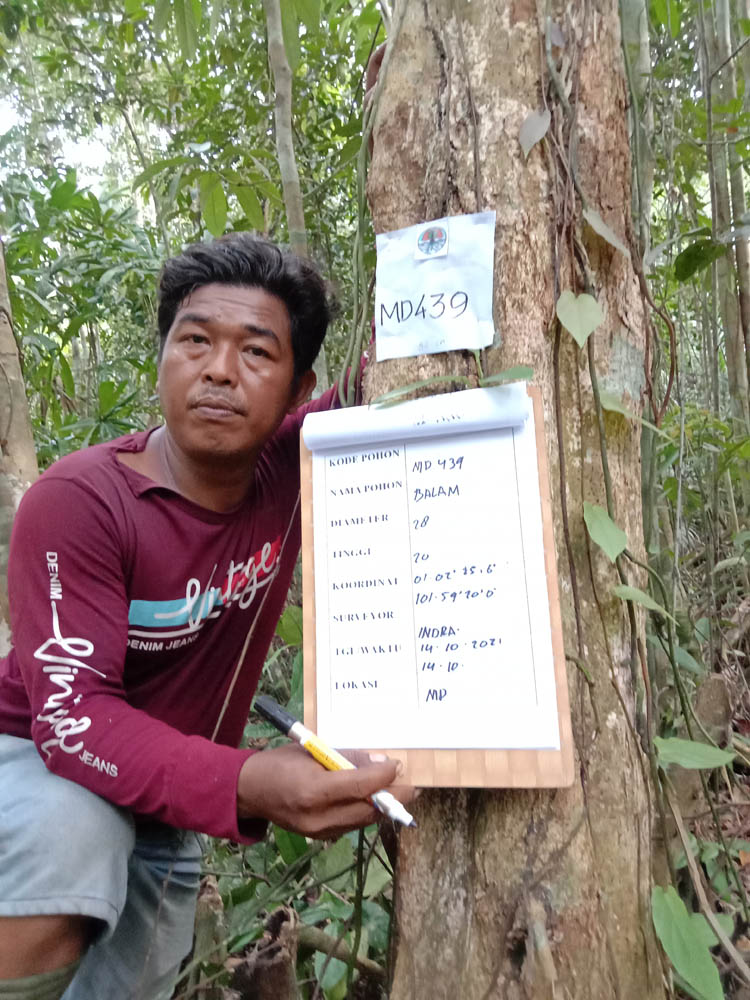 MD439
KODE POHON MD 439
NAMA POHON BALAM
DIAMETER 28
TINGGI 20
KOORDINAT 01.02'.35,6"
101.59'20'0"
SURVEYOR INDRA.
TGL/WAKTU 14.10.2021
14.10.
LOKASI MD
Vintage
DENIM JEANS
DENIM
Vintage
JEANS